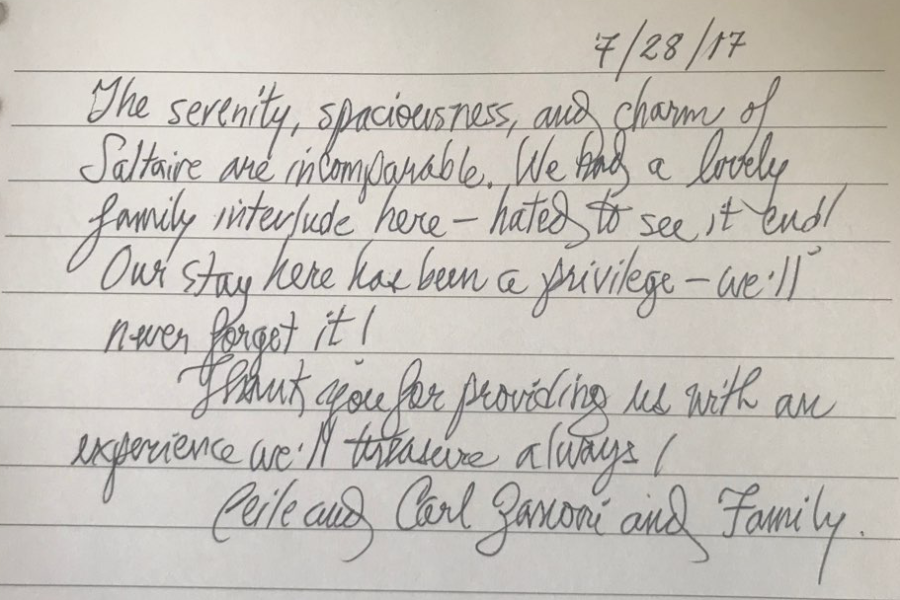 7/28/17
The serenity, spaciousness, and charm of
Saltaire are incomparable. We had a lovely
family interlude here – hated to see it end!
Our stay here has been a privilege – we'll
never forget it!
Thank you for providing us with an
experience we'll treasure always!
Ceile and Carl Zanoni and Family.